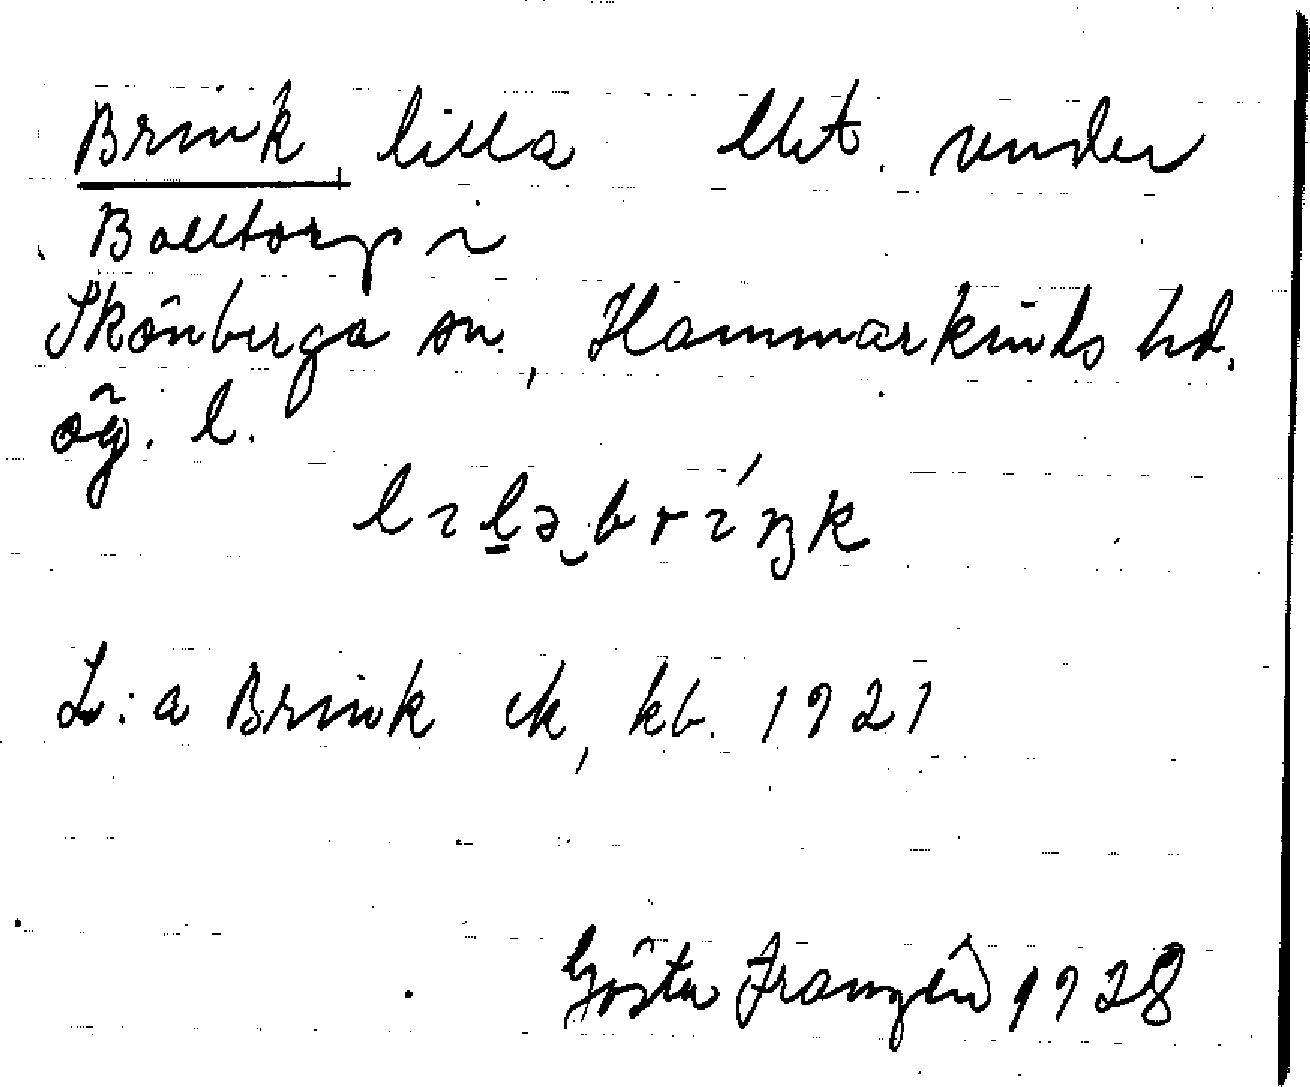 Brink, lilla lht. under
Balltorp i
Skönberga sn., Hammarkinds hd.
Ög. l.
lɩlə brɩ́ŋk
L:a Brink ck, kb. 1921
Gösta Franzén 1928